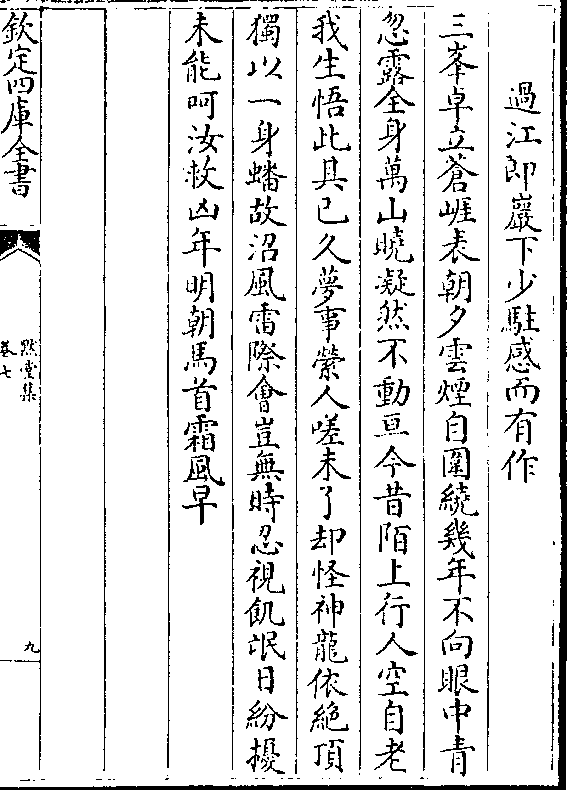 過江郎巖下少駐感而有作
三峯卓立蒼崕表朝夕雲煙自圍繞幾年不向眼中青
忽露全身萬山曉凝然不動亘今昔陌上行人空自老
我生悟此具已久夢事縈人嗟未了却怪神龍依絶頂
獨以一身蟠故沼風雷際會豈無時忍視飢氓日紛擾
未能呵汝救凶年明朝馬首霜風早
欽定四庫全書
默堂集
卷七
九